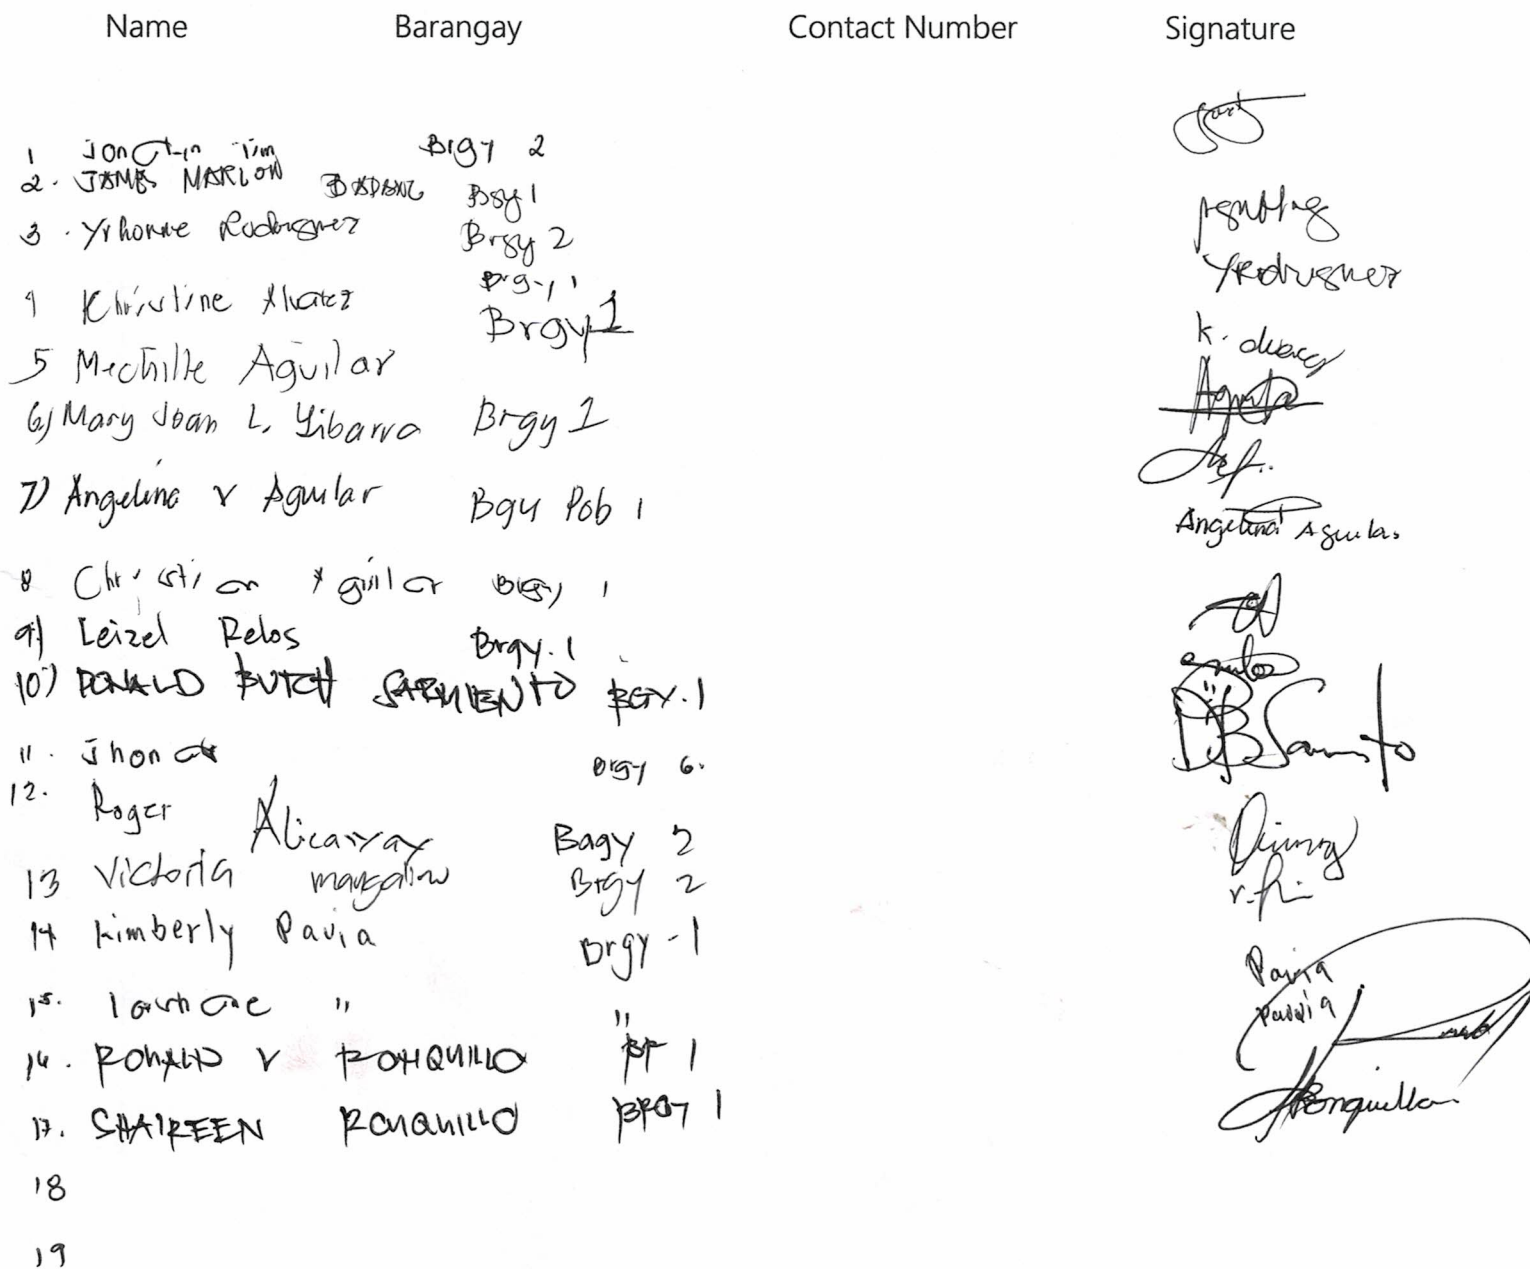 Name Barangay Contact Number Signature
1 Tim Brgy 2
2. JAMES MARLON Bgy 1
3. Yvhonne Rodriguez Brgy 2
YRodriguez
Brgy 1
4 Khristine Alvarez Brgy 1
5 Mechille Aguilar
6) Mary Joan L. Yibarra Brgy 1
7) Angelina V Aguilar Bgy Pob 1
Angelina Aguilar
8 Christian Aguilar Brgy 1
9) Leizel Relos Brgy. 1
10) DONALD BUTCH SARMIENTO BGY. 1
11. Jhon Brgy 6.
12. Roger Alicaryay Bagy 2
13 Victoria Brgy 2
14 Kimberly Pavia Brgy - 1
Pavia
15. " "
Pavia
16. RONALD V RONQUILLO 1
17. SHAIREEN RONQUILLO BRGY 1
Ronquillo
18
19